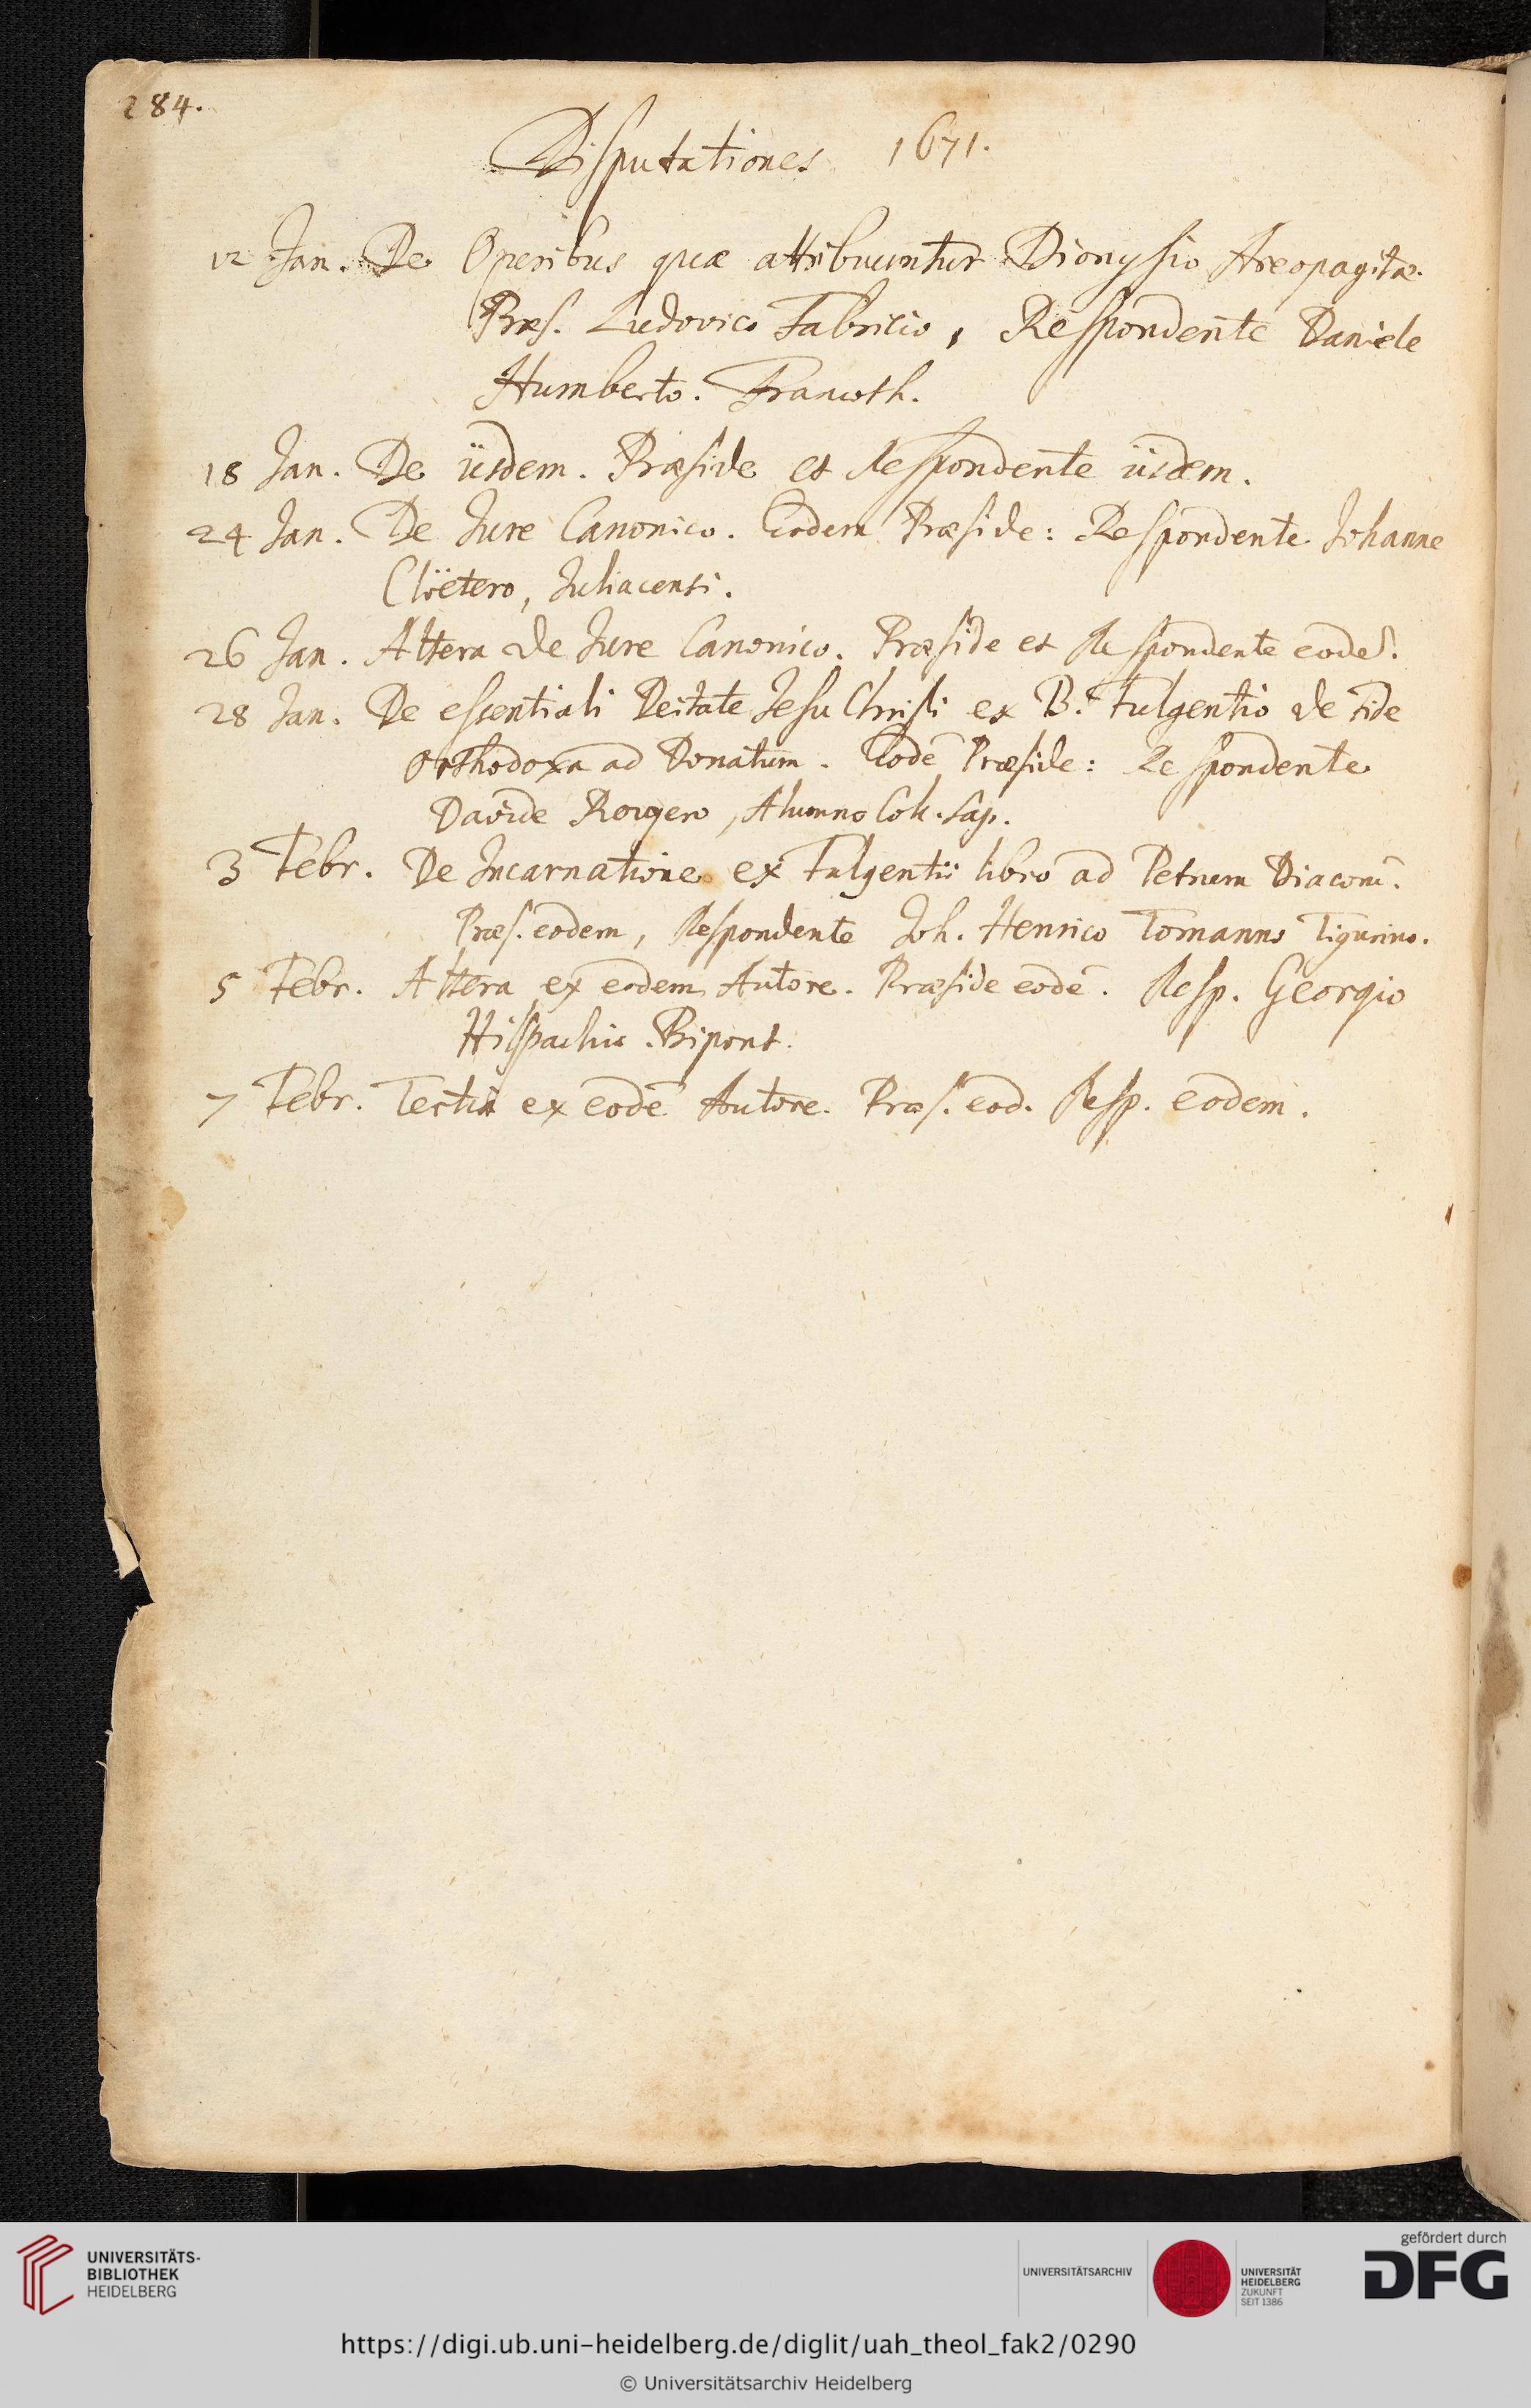 284.
Disputationes 1671.
12 Jan. De Operibus quæ attribuuntur Dionysio Areopagitæ.
Præs. Ludovico Fabricio, Respondente Daniele
Humberto. Francoth.
18 Jan. De iisdem. Præside et Respondente iisdem.
24 Jan. De Jure Canonico. Eodem Præside: Respondente Johanne
Clöetero, Juliacensi.
26 Jan. Altera de Jure Canonico. Præside et Respondente eodẽ.
28 Jan. De essentiali Deitate Jesu Christi ex B. Fulgentio de fide
orthodoxa ad Donatum. Eodẽ Præside: Respondente
Davide Rougero, Alumno Coll. Sap.
3 Febr. De Incarnatione ex Fulgentii libro ad Petrum Diaconũ.
Præs. eodem, Respondente Joh. Henrico Tomanno Tigurino.
5 Febr. Altera ex eodem Autore. Præside eodẽ. Resp. Georgio
Hilspachio Bipont.
7 Febr. Tertia ex eodẽ Autore. Præs. eod. Resp. eodem.
UNIVERSITÄTS-
BIBLIOTHEK
HEIDELBERG
UNIVERSITÄTSARCHIV
UNIVERSITÄT
HEIDELBERG
ZUKUNFT
SEIT 1386
gefördert durch
DFG
https://digi.ub.uni-heidelberg.de/diglit/uah_theol_fak2/0290
© Universitätsarchiv Heidelberg